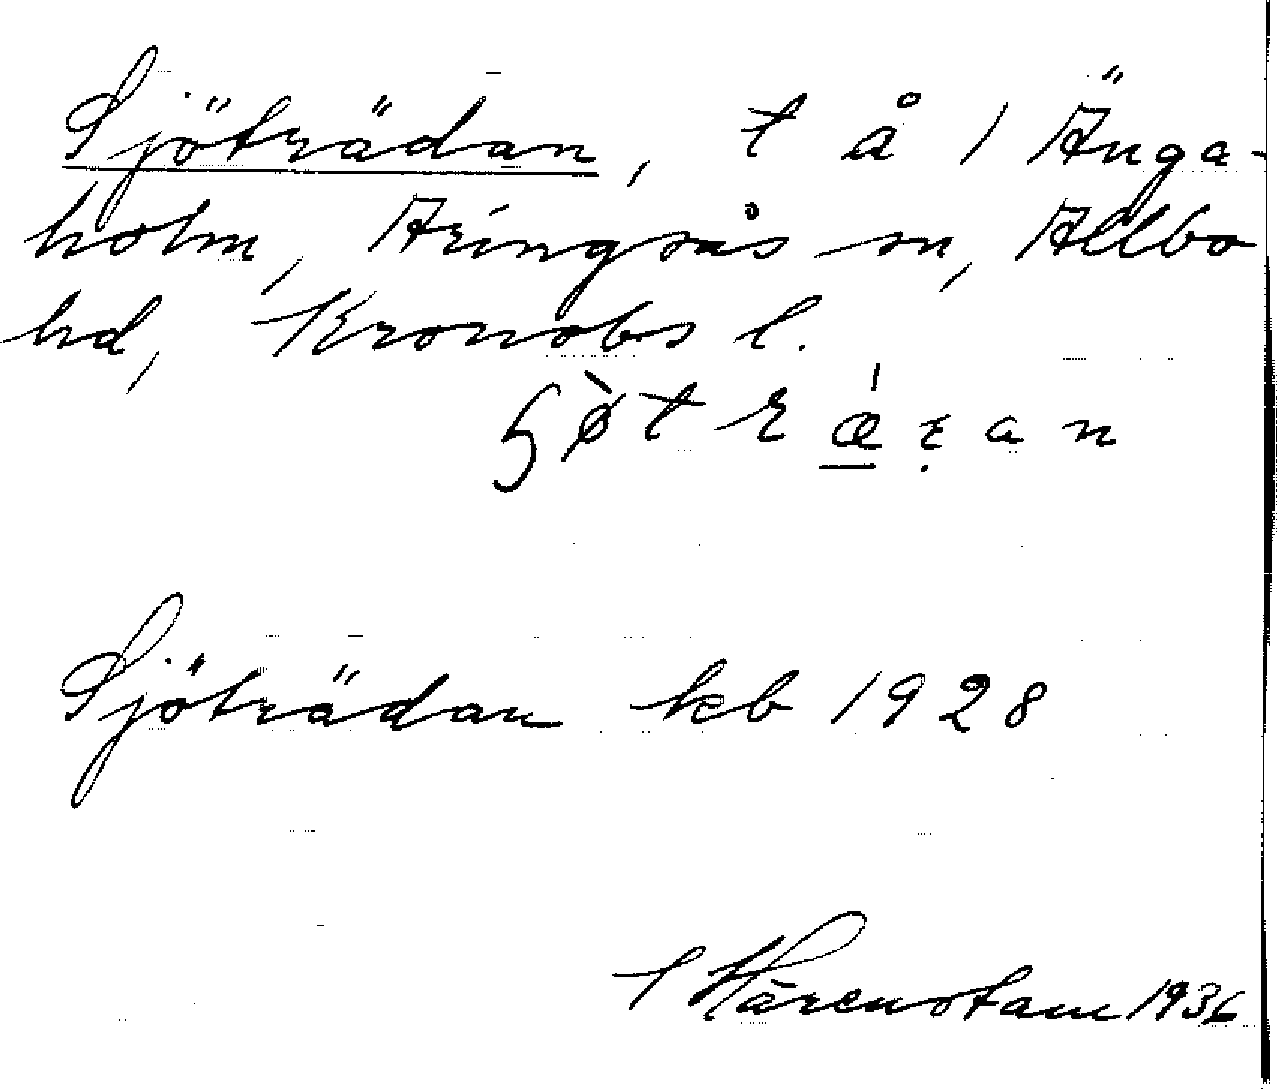 Sjöträdan, t å 1 Änga-
holm, Aringsås sn, Allbo
hd, Kronobs l.
Sjöträdan kb 1928
Härenstam 1936